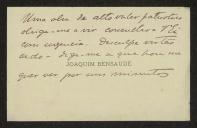 Uma obra de alto valor patriotico
obriga-me a vir consultar V. Ex.
com urgencia. Desculpe vir tão
cedo - diga-me a que hora me
JOAQUIM BENSAUDE
quer ver por uns minutos